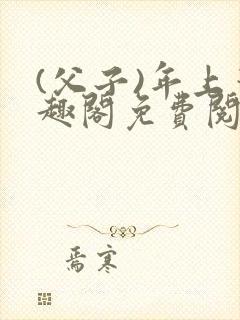 (父子)年上
趣阁免费阅
焉寒